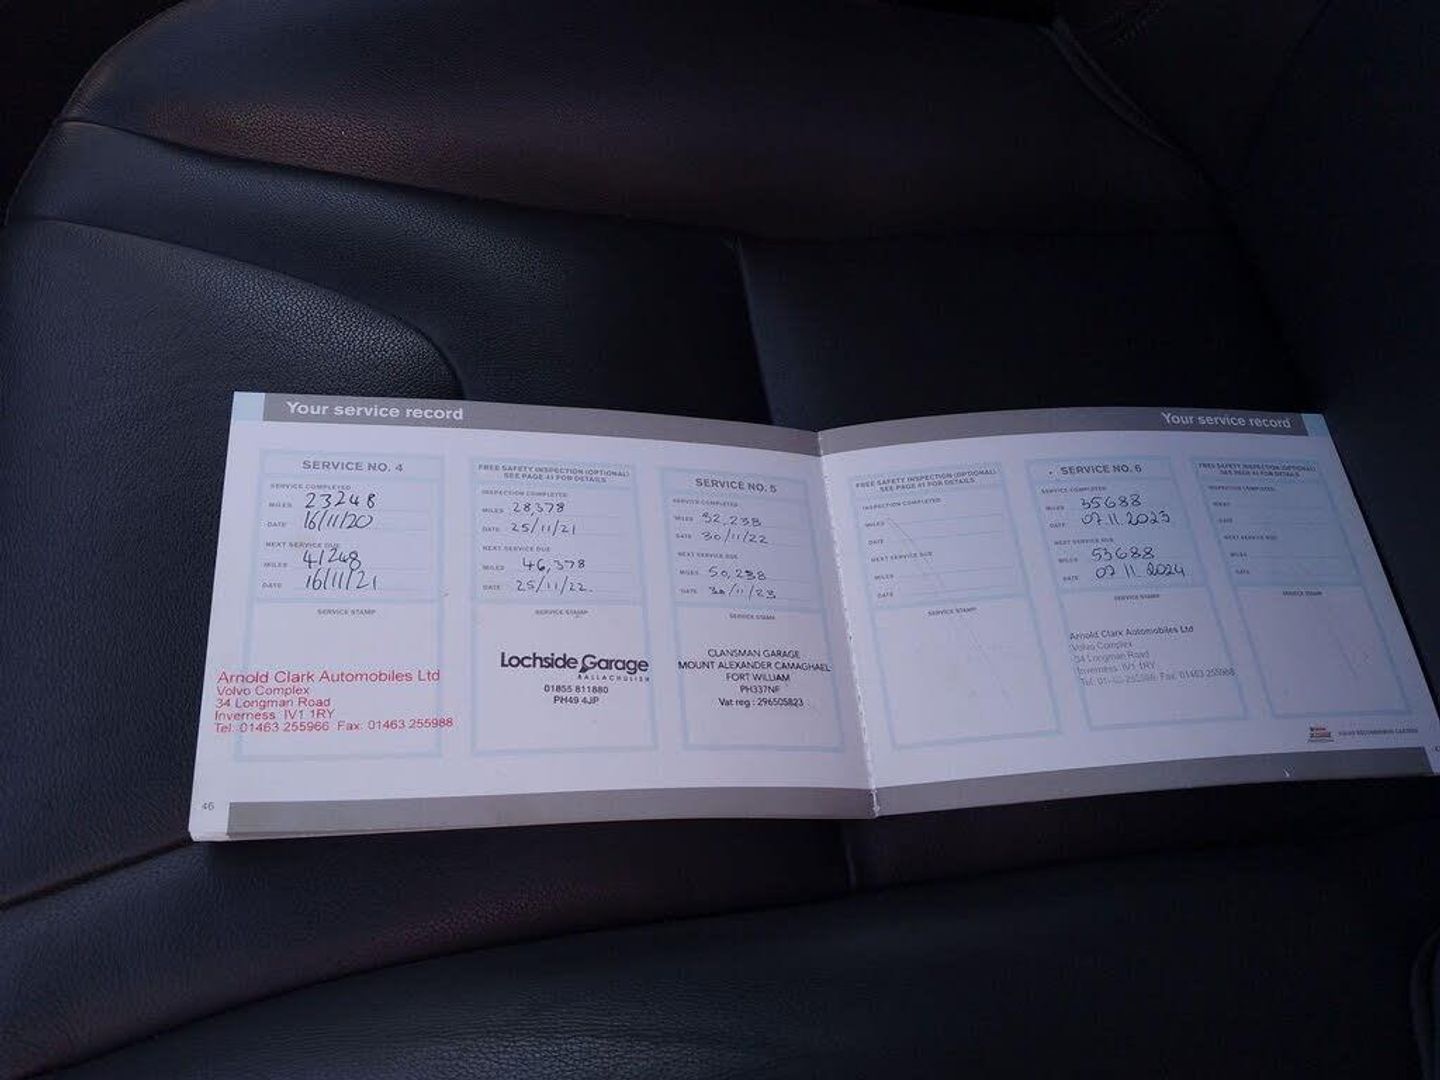 Your service record
SERVICE NO. 4
SERVICE COMPLETED
MILES 23248
DATE 16/11/20
NEXT SERVICE DUE
MILES 41248
DATE 16/11/21
SERVICE STAMP
Arnold Clark Automobiles Ltd
Volvo Complex
34 Longman Road
Inverness IV1 1RY
Tel: 01463 255966 Fax: 01463 255988
46
FREE SAFETY INSPECTION (OPTIONAL)
SEE PAGE 41 FOR DETAILS
INSPECTION COMPLETED
MILES 28,378
DATE 25/11/21
NEXT SERVICE DUE
MILES 46,378
DATE 25/11/22.
SERVICE STAMP
Lochside Garage
BALLACHULISH
01855 811880
PH49 4JP
SERVICE NO. 5
SERVICE COMPLETED
MILES 32,238
DATE 30/11/22
NEXT SERVICE DUE
MILES 50,238
DATE 30/11/23
SERVICE STAMP
CLANSMAN GARAGE
MOUNT ALEXANDER CAMAGHAEL
FORT WILLIAM
PH337NF
Vat reg : 296505823
Your service record
FREE SAFETY INSPECTION (OPTIONAL)
SEE PAGE 41 FOR DETAILS
INSPECTION COMPLETED
MILES
DATE
NEXT SERVICE DUE
MILES
DATE
SERVICE STAMP
SERVICE NO. 6
SERVICE COMPLETED
MILES 35688
DATE 07.11.2023
NEXT SERVICE DUE
MILES 53688
DATE 07 11 2024
SERVICE STAMP
Arnold Clark Automobiles Ltd
Volvo Complex
34 Longman Road
Inverness IV1 1RY
Fax: 01463 255988
FREE SAFETY INSPECTION (OPTIONAL)
SEE PAGE 41 FOR DETAILS
INSPECTION COMPLETED
MILES
DATE
NEXT SERVICE DUE
MILES
DATE
SERVICE STAMP
VOLVO RECOMMENDS CASTROL